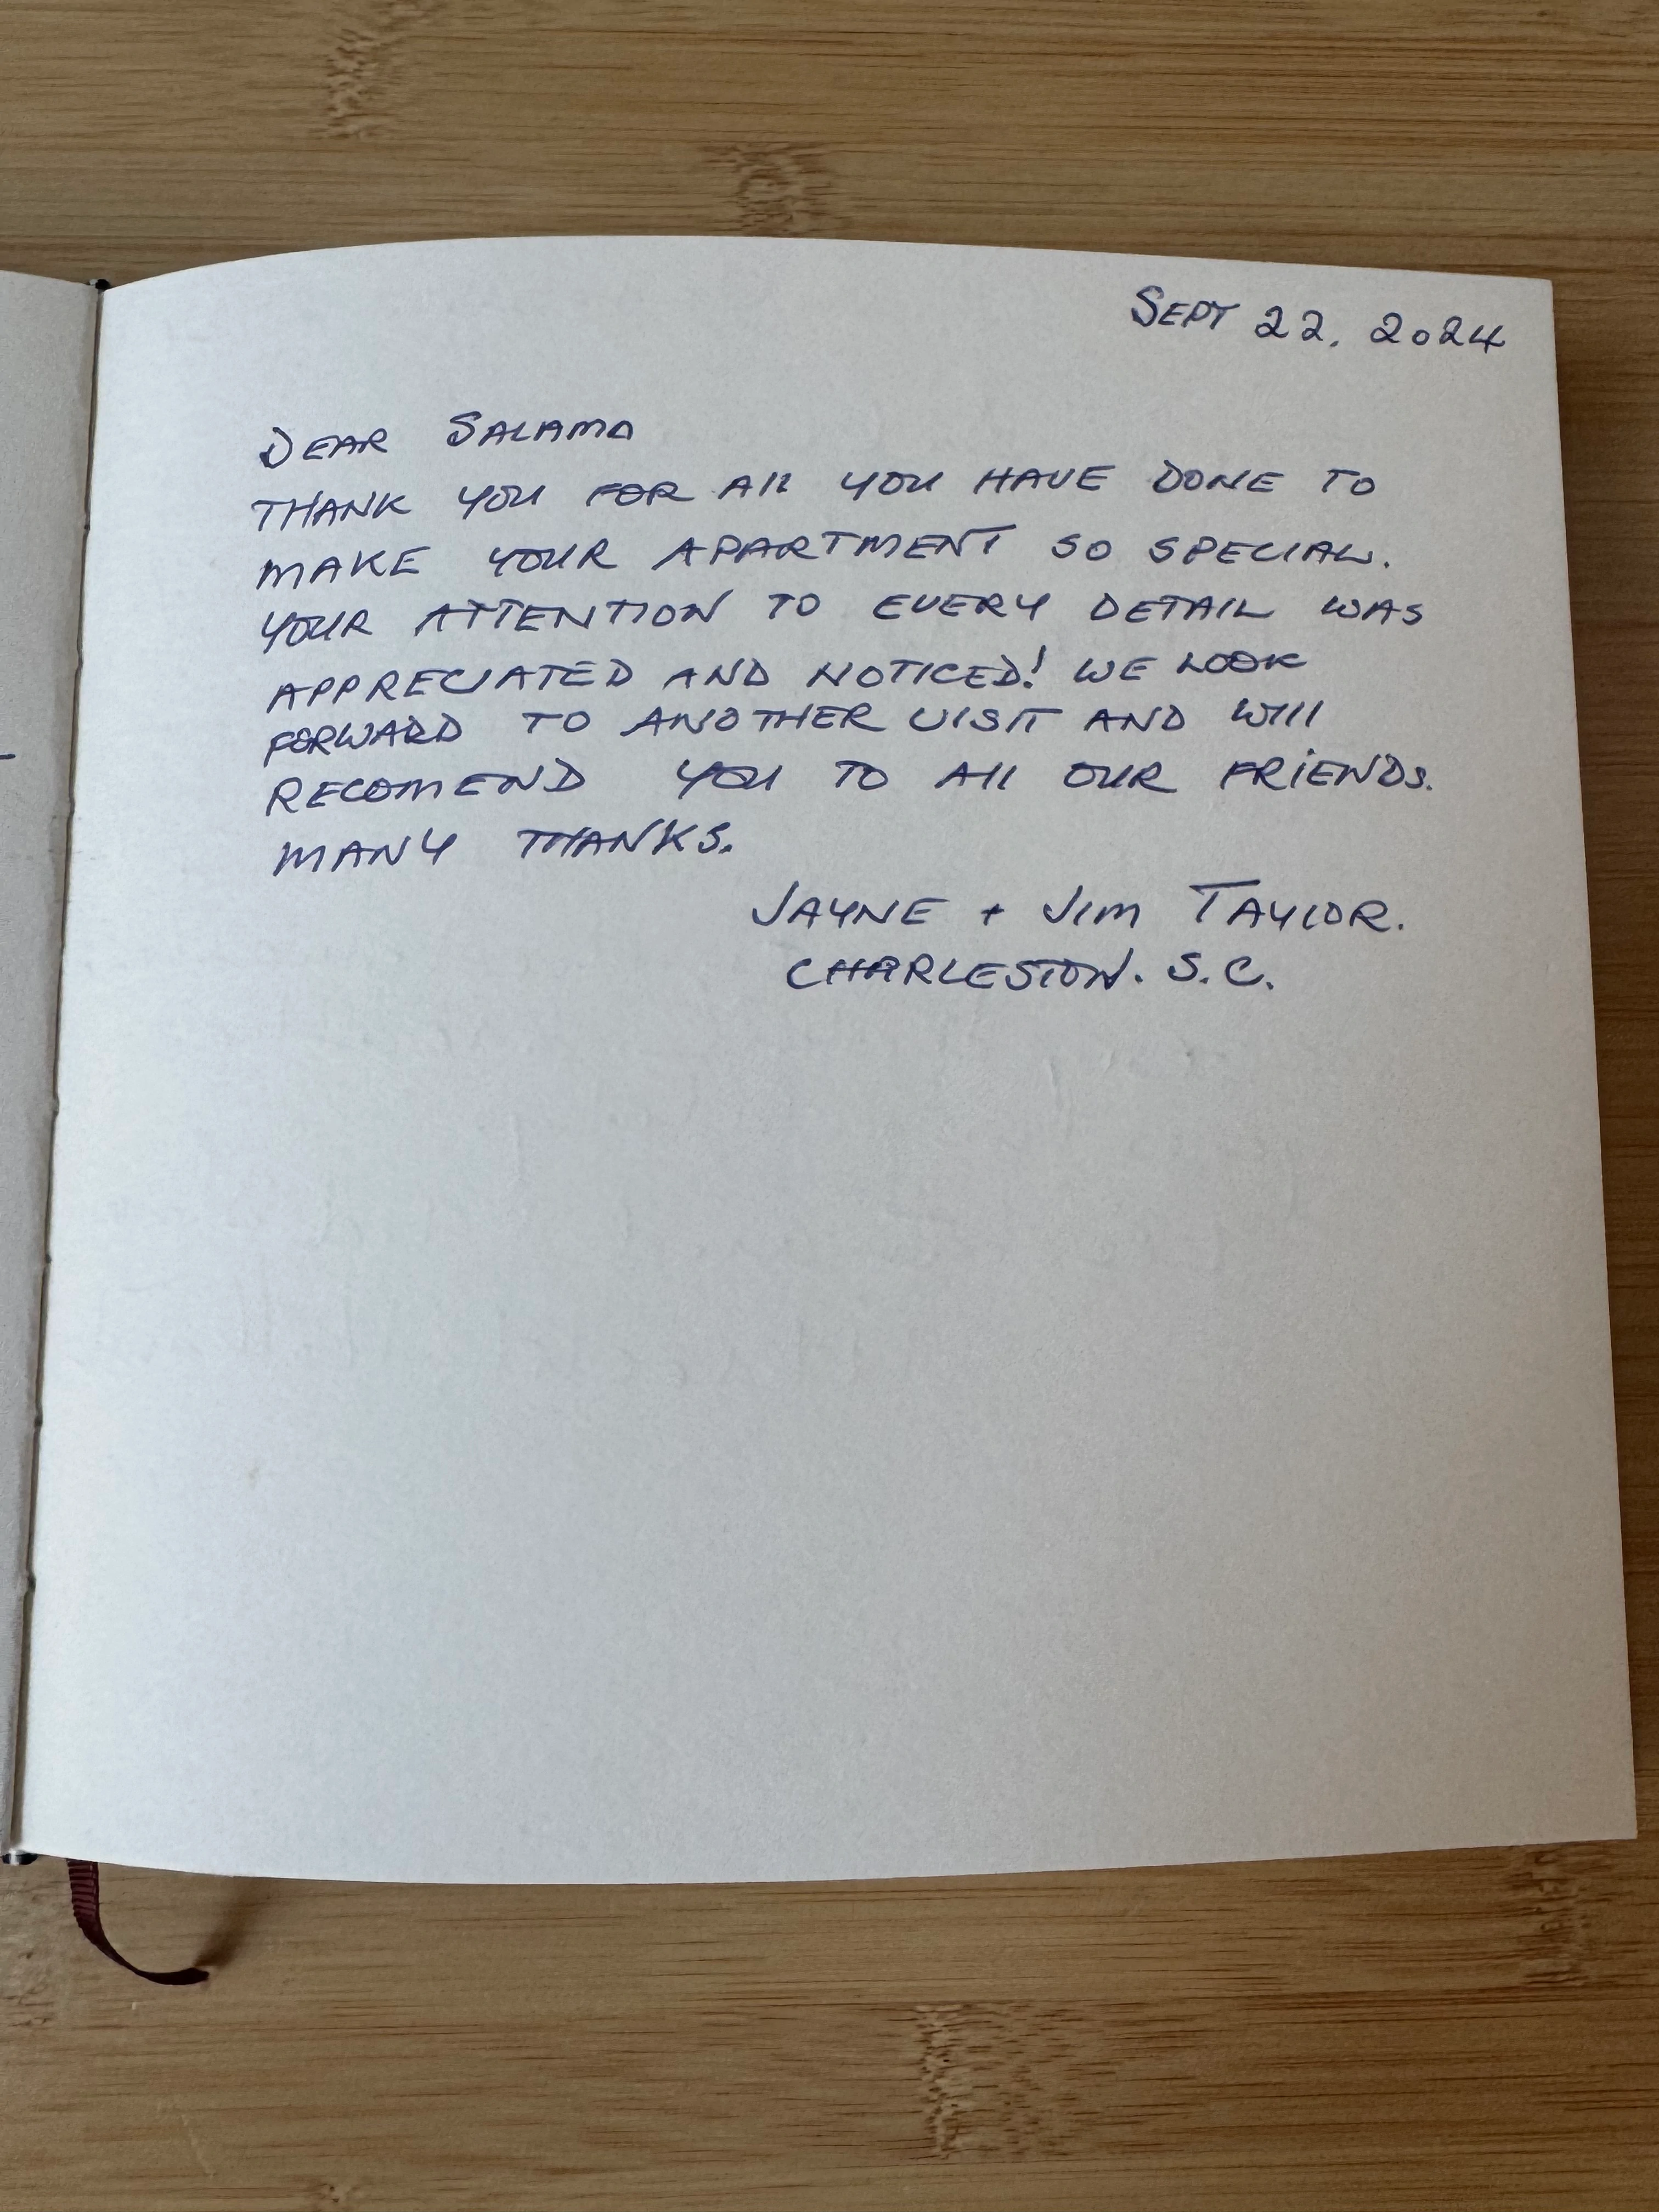 SEPT 22. 2024
DEAR SALAMA
THANK YOU FOR All YOU HAVE DONE TO
MAKE YOUR APARTMENT SO SPECIAL.
YOUR ATTENTION TO EVERY DETAIL WAS
APPRECIATED AND NOTICED! WE LOOK
FORWARD TO ANOTHER VISIT AND WIll
RECOMEND YOU TO All OUR FRiENDS.
MANY THANKS.
JAYNE + JIM TAYLOR.
CHARLESTON. S.C.